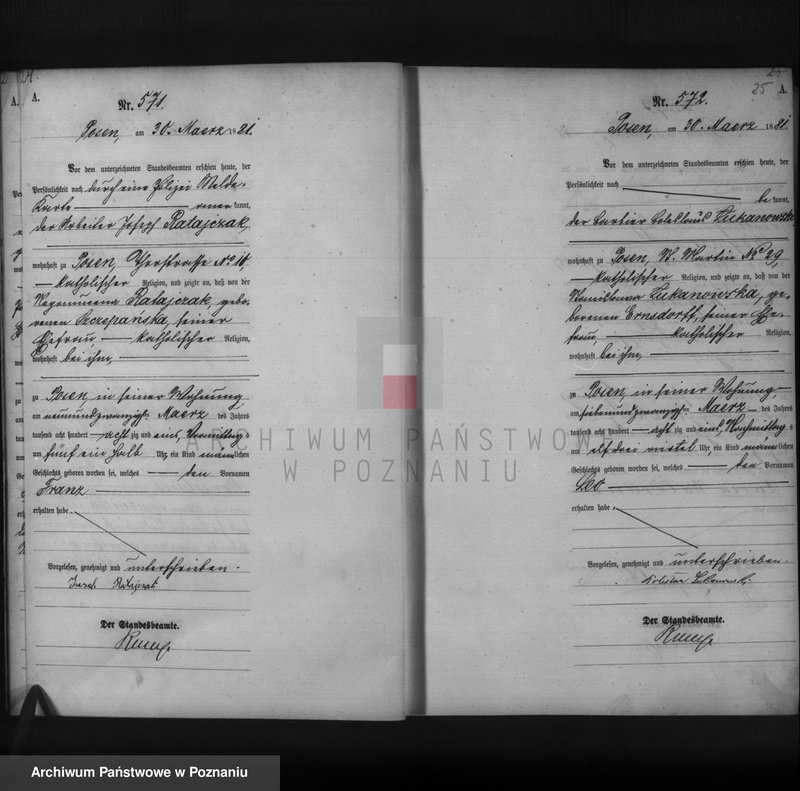 A.
Nr. 571.
Posen, am 30. Maerz 1881.
Vor dem unterzeichneten Standesbeamten erschien heute, der
Persönlichkeit nach durch eine Polizei Melde-
Karte kannt,
der Arbeiter Joseph Ratajczak,
wohnhaft zu Posen, No 11,
katholischer Religion, und zeigte an, daß von der
Ratajczak, gebo-
renen Szczepańska, seiner
Ehefrau katholischer Religion,
wohnhaft bei ihm,
zu Posen in seiner Wohnung
am neunundzwanzigsten Maerz des Jahres
tausend acht hundert achtzig und eins, Vormittags
um fünf ein halb Uhr, ein Kind männlichen
Geschlechts geboren worden sei, welches den Vornamen
Franz
erhalten habe.
Vorgelesen, genehmigt und unterschrieben.
Der Standesbeamte.
25
A.
Nr. 572.
Posen, am 30. Maerz 1881.
Vor dem unterzeichneten Standesbeamten erschien heute, der
Persönlichkeit nach
bekannt,
der Barbier Boleslaus Lukanowski
wohnhaft zu Posen, St. Martin No 29
katholischer Religion, und zeigte an, daß von der
Lukanowska, ge-
borenen Ernsdorff, seiner Ehe-
frau, katholischer Religion,
wohnhaft bei ihm,
zu Posen, in seiner Wohnung,
am siebenundzwanzigsten Maerz des Jahres
tausend acht hundert achtzig und eins, Nachmittags
um elf drei viertel Uhr, ein Kind männlichen
Geschlechts geboren worden sei, welches den Vornamen
Leo
erhalten habe.
Vorgelesen, genehmigt und unterschrieben.
Der Standesbeamte.
ARCHIWUM PAŃSTWOWE
W POZNANIU
Archiwum Państwowe w Poznaniu